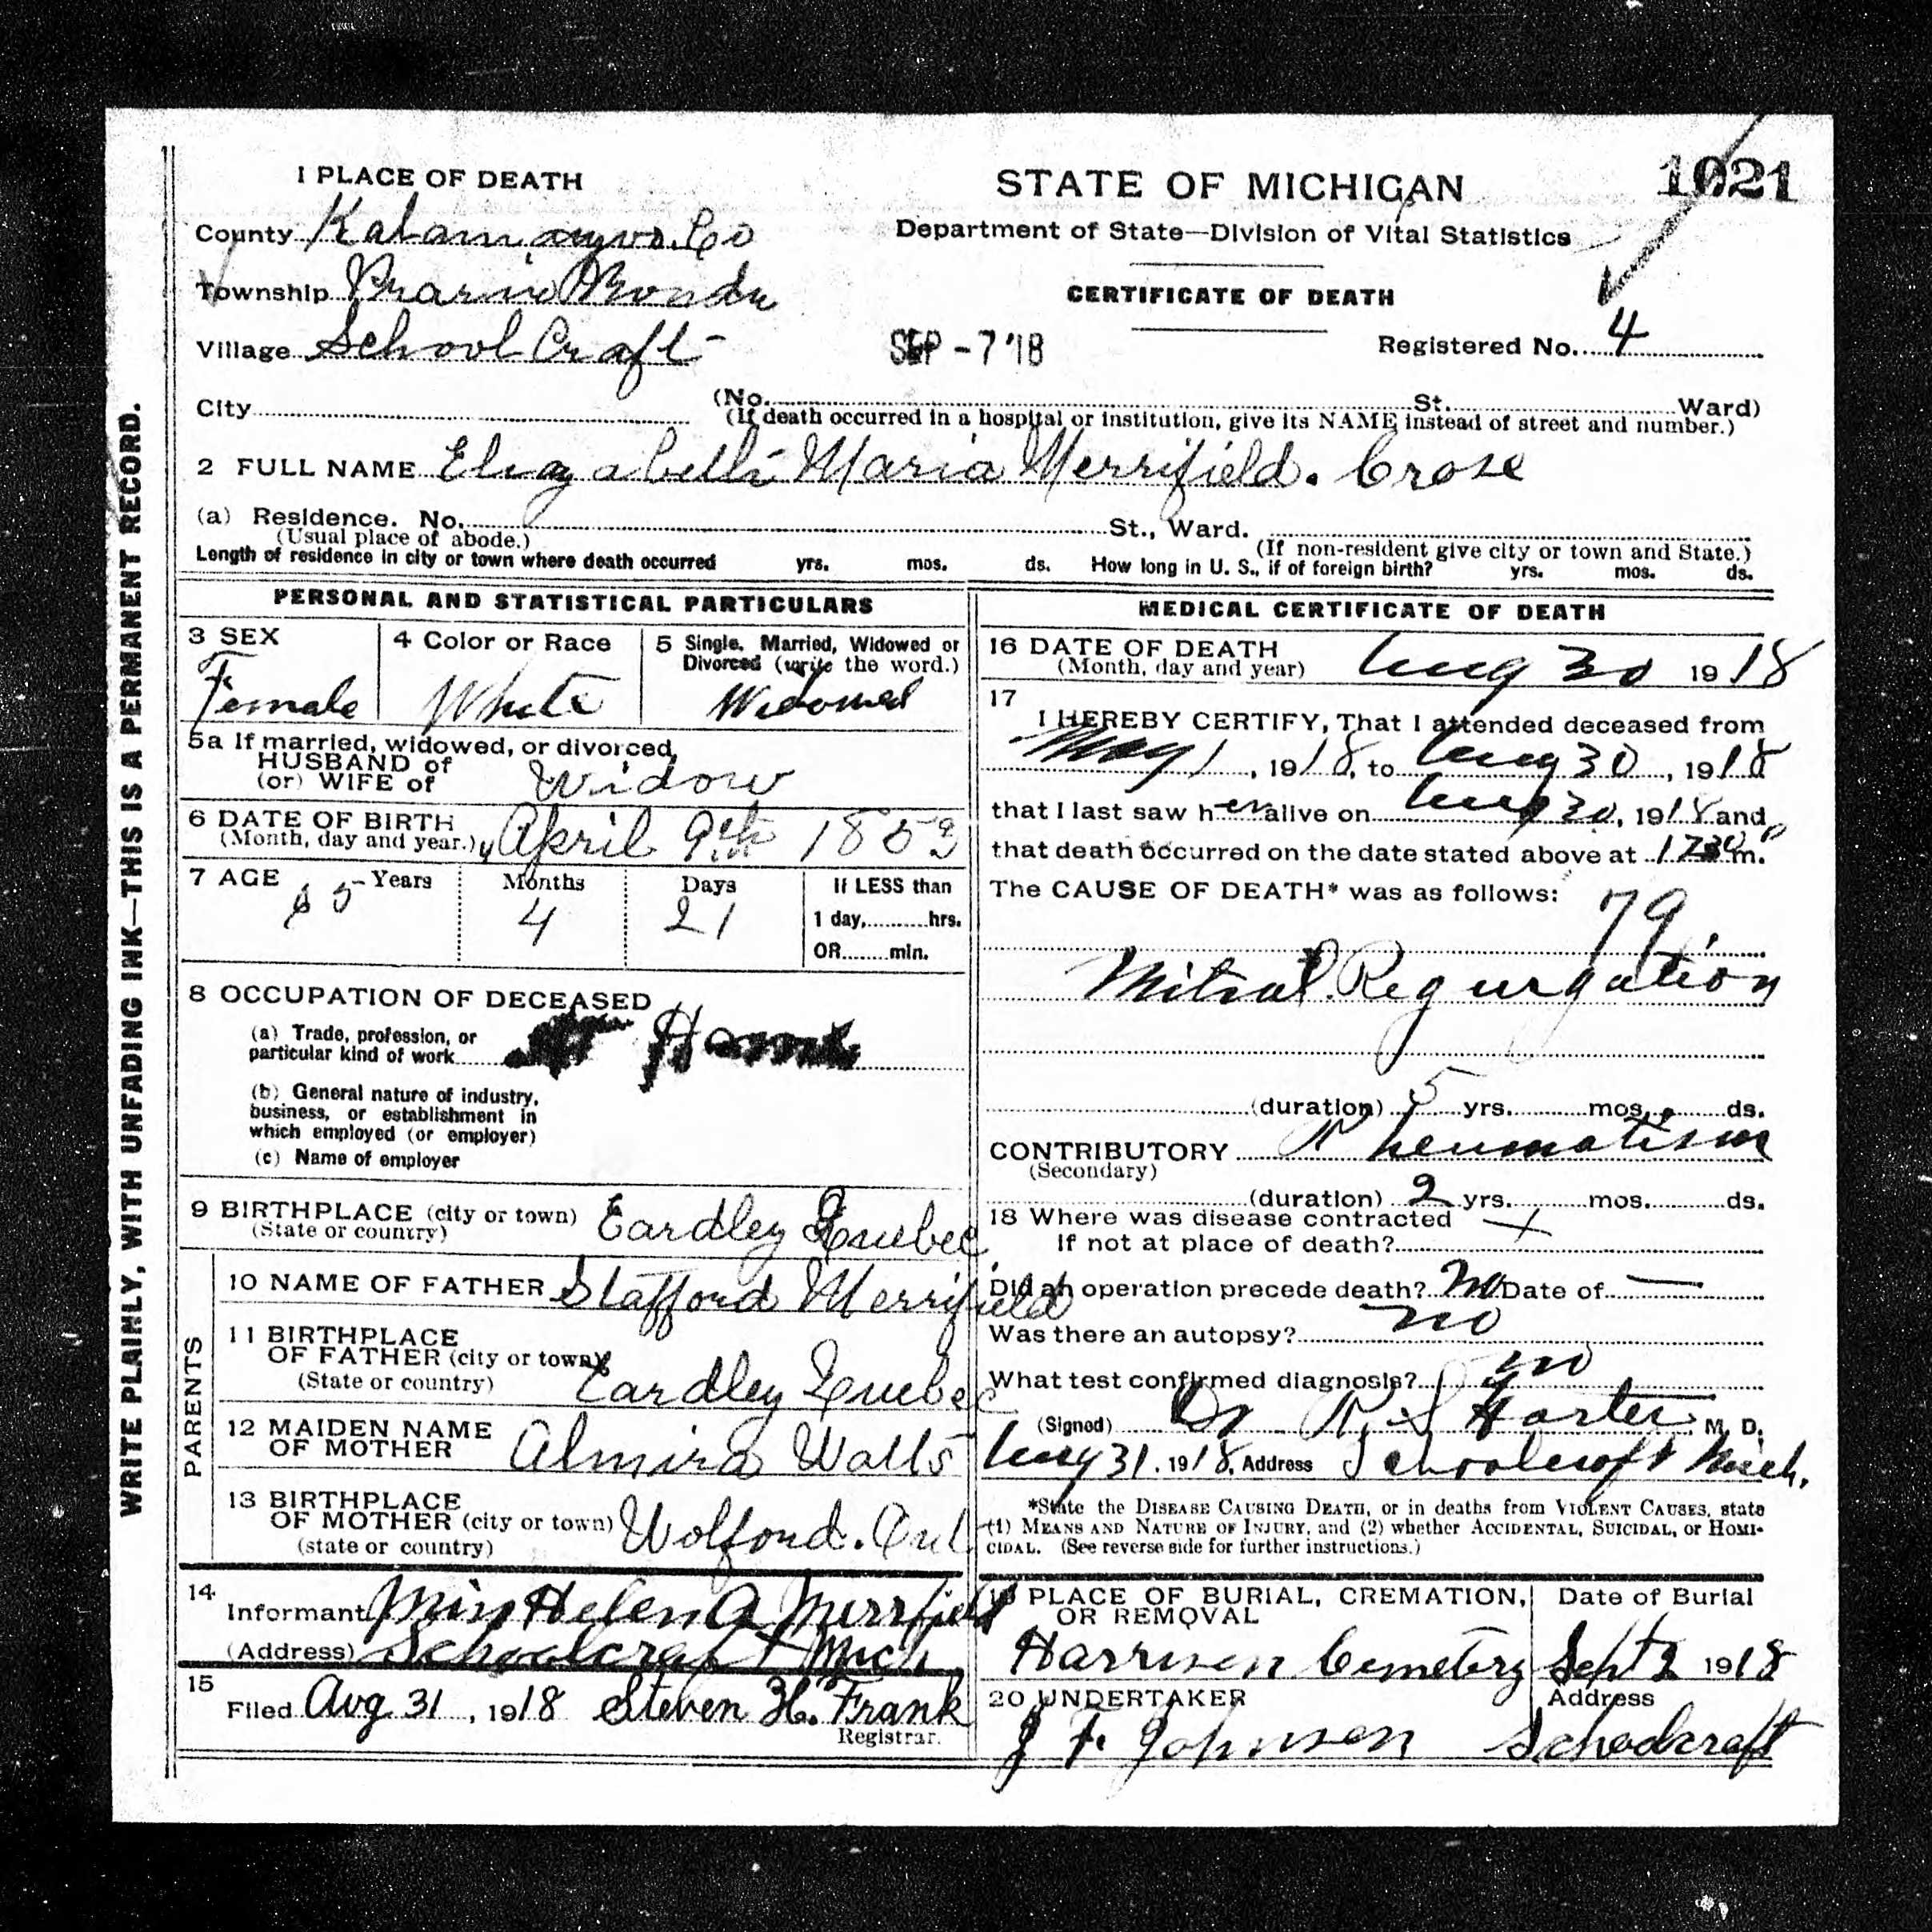 1021
1 PLACE OF DEATH
STATE OF MICHIGAN
County Kalamazoo Co
Department of State—Division of Vital Statistics
Township Prarie Ronde
CERTIFICATE OF DEATH
Village School Craft
SEP -7 '18
Registered No. 4
City
(No. St. Ward)
(If death occurred in a hospital or institution, give its NAME instead of street and number.)
2 FULL NAME Elizabeth Maria Merrifield. Crose
(a) Residence. No. St., Ward.
(Usual place of abode.)
(If non-resident give city or town and State.)
Length of residence in city or town where death occurred yrs. mos. ds. How long in U. S., if of foreign birth? yrs. mos. ds.
PERSONAL AND STATISTICAL PARTICULARS
3 SEX
Female
4 Color or Race
White
5 Single, Married, Widowed or
Divorced (write the word.)
Widowed
5a If married, widowed, or divorced,
HUSBAND of
(or) WIFE of Widow
6 DATE OF BIRTH
(Month, day and year.) April 9th 1853
7 AGE 65 Years
Months
4
Days
21
If LESS than
1 day, hrs.
OR min.
8 OCCUPATION OF DECEASED
(a) Trade, profession, or
particular kind of work
(b) General nature of industry,
business, or establishment in
which employed (or employer)
(c) Name of employer
9 BIRTHPLACE (city or town) Eardley Quebec
(State or country)
PARENTS
10 NAME OF FATHER Stafford Merrifield
11 BIRTHPLACE
OF FATHER (city or town)
(State or country) Eardley Quebec
12 MAIDEN NAME
OF MOTHER Almira Watts
13 BIRTHPLACE
OF MOTHER (city or town) Wolford. Ont
(state or country)
14
Informant Miss Helen A Merrifield
(Address) Schoolcraft Mich
15
Filed Aug 31, 1918 Steven H. Frank
Registrar.
MEDICAL CERTIFICATE OF DEATH
16 DATE OF DEATH
(Month, day and year) Aug 30 1918
17
I HEREBY CERTIFY, That I attended deceased from
May 1, 1918, to Aug 30, 1918
that I last saw her alive on Aug 30, 1918 and
that death occurred on the date stated above at m.
The CAUSE OF DEATH* was as follows:
79
Mitral Regurgation
(duration) 5 yrs. mos. ds.
CONTRIBUTORY Rheumatism
(Secondary)
(duration) 2 yrs. mos. ds.
18 Where was disease contracted
If not at place of death?
Did an operation precede death? No Date of —
Was there an autopsy? no
What test confirmed diagnosis? no
(Signed) Dr R. S Harter, M. D.
Aug 31, 1918, Address Schoolcraft Mich.
*State the DISEASE CAUSING DEATH, or in deaths from VIOLENT CAUSES, state
(1) MEANS AND NATURE OF INJURY, and (2) whether ACCIDENTAL, SUICIDAL, or HOMI-
CIDAL. (See reverse side for further instructions.)
19 PLACE OF BURIAL, CREMATION,
OR REMOVAL
Harrison Cemetery
Date of Burial
Sept 2 1918
20 UNDERTAKER
J F. Johnson
Address
Schoolcraft
WRITE PLAINLY, WITH UNFADING INK—THIS IS A PERMANENT RECORD.